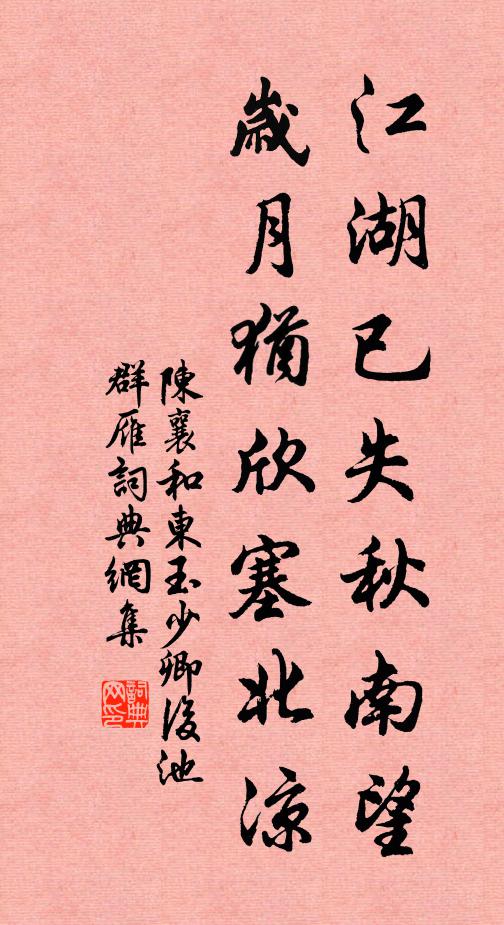 江湖已失秋南望
歲月猶欣塞北凉
陳襄和東玉少卿後池
群雁詞典網集
詞典
网印